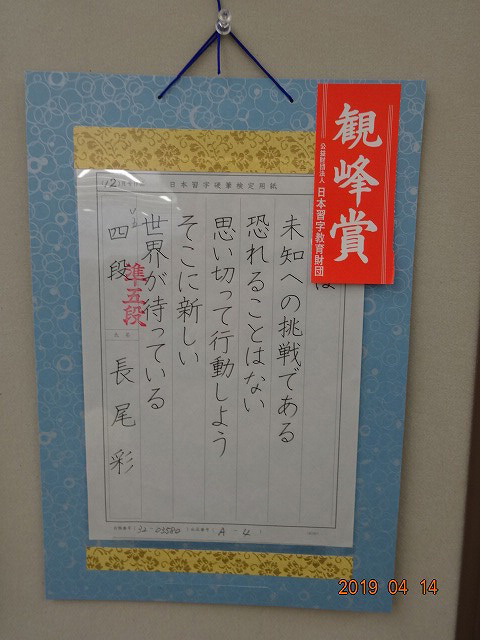 観峰賞
公益財団法人 日本習字教育財団
日本習字硬筆検定用紙
は
未知への挑戦である
恐れることはない
思い切って行動しよう
そこに新しい
世界が待っている
四段
準五段
長尾彩
A-4
2019 04 14